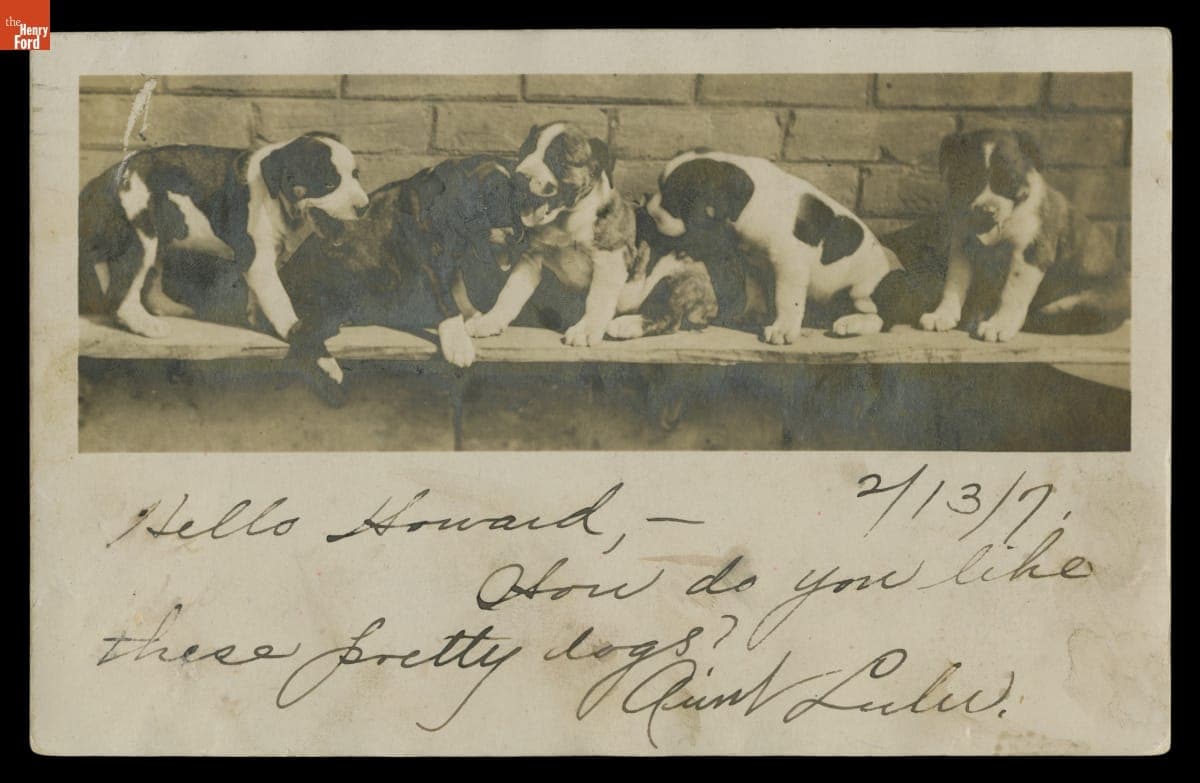 the
Henry
Ford
Hello Howard, — 2/13/7.
How do you like
these pretty dogs?
Aunt Lulu.